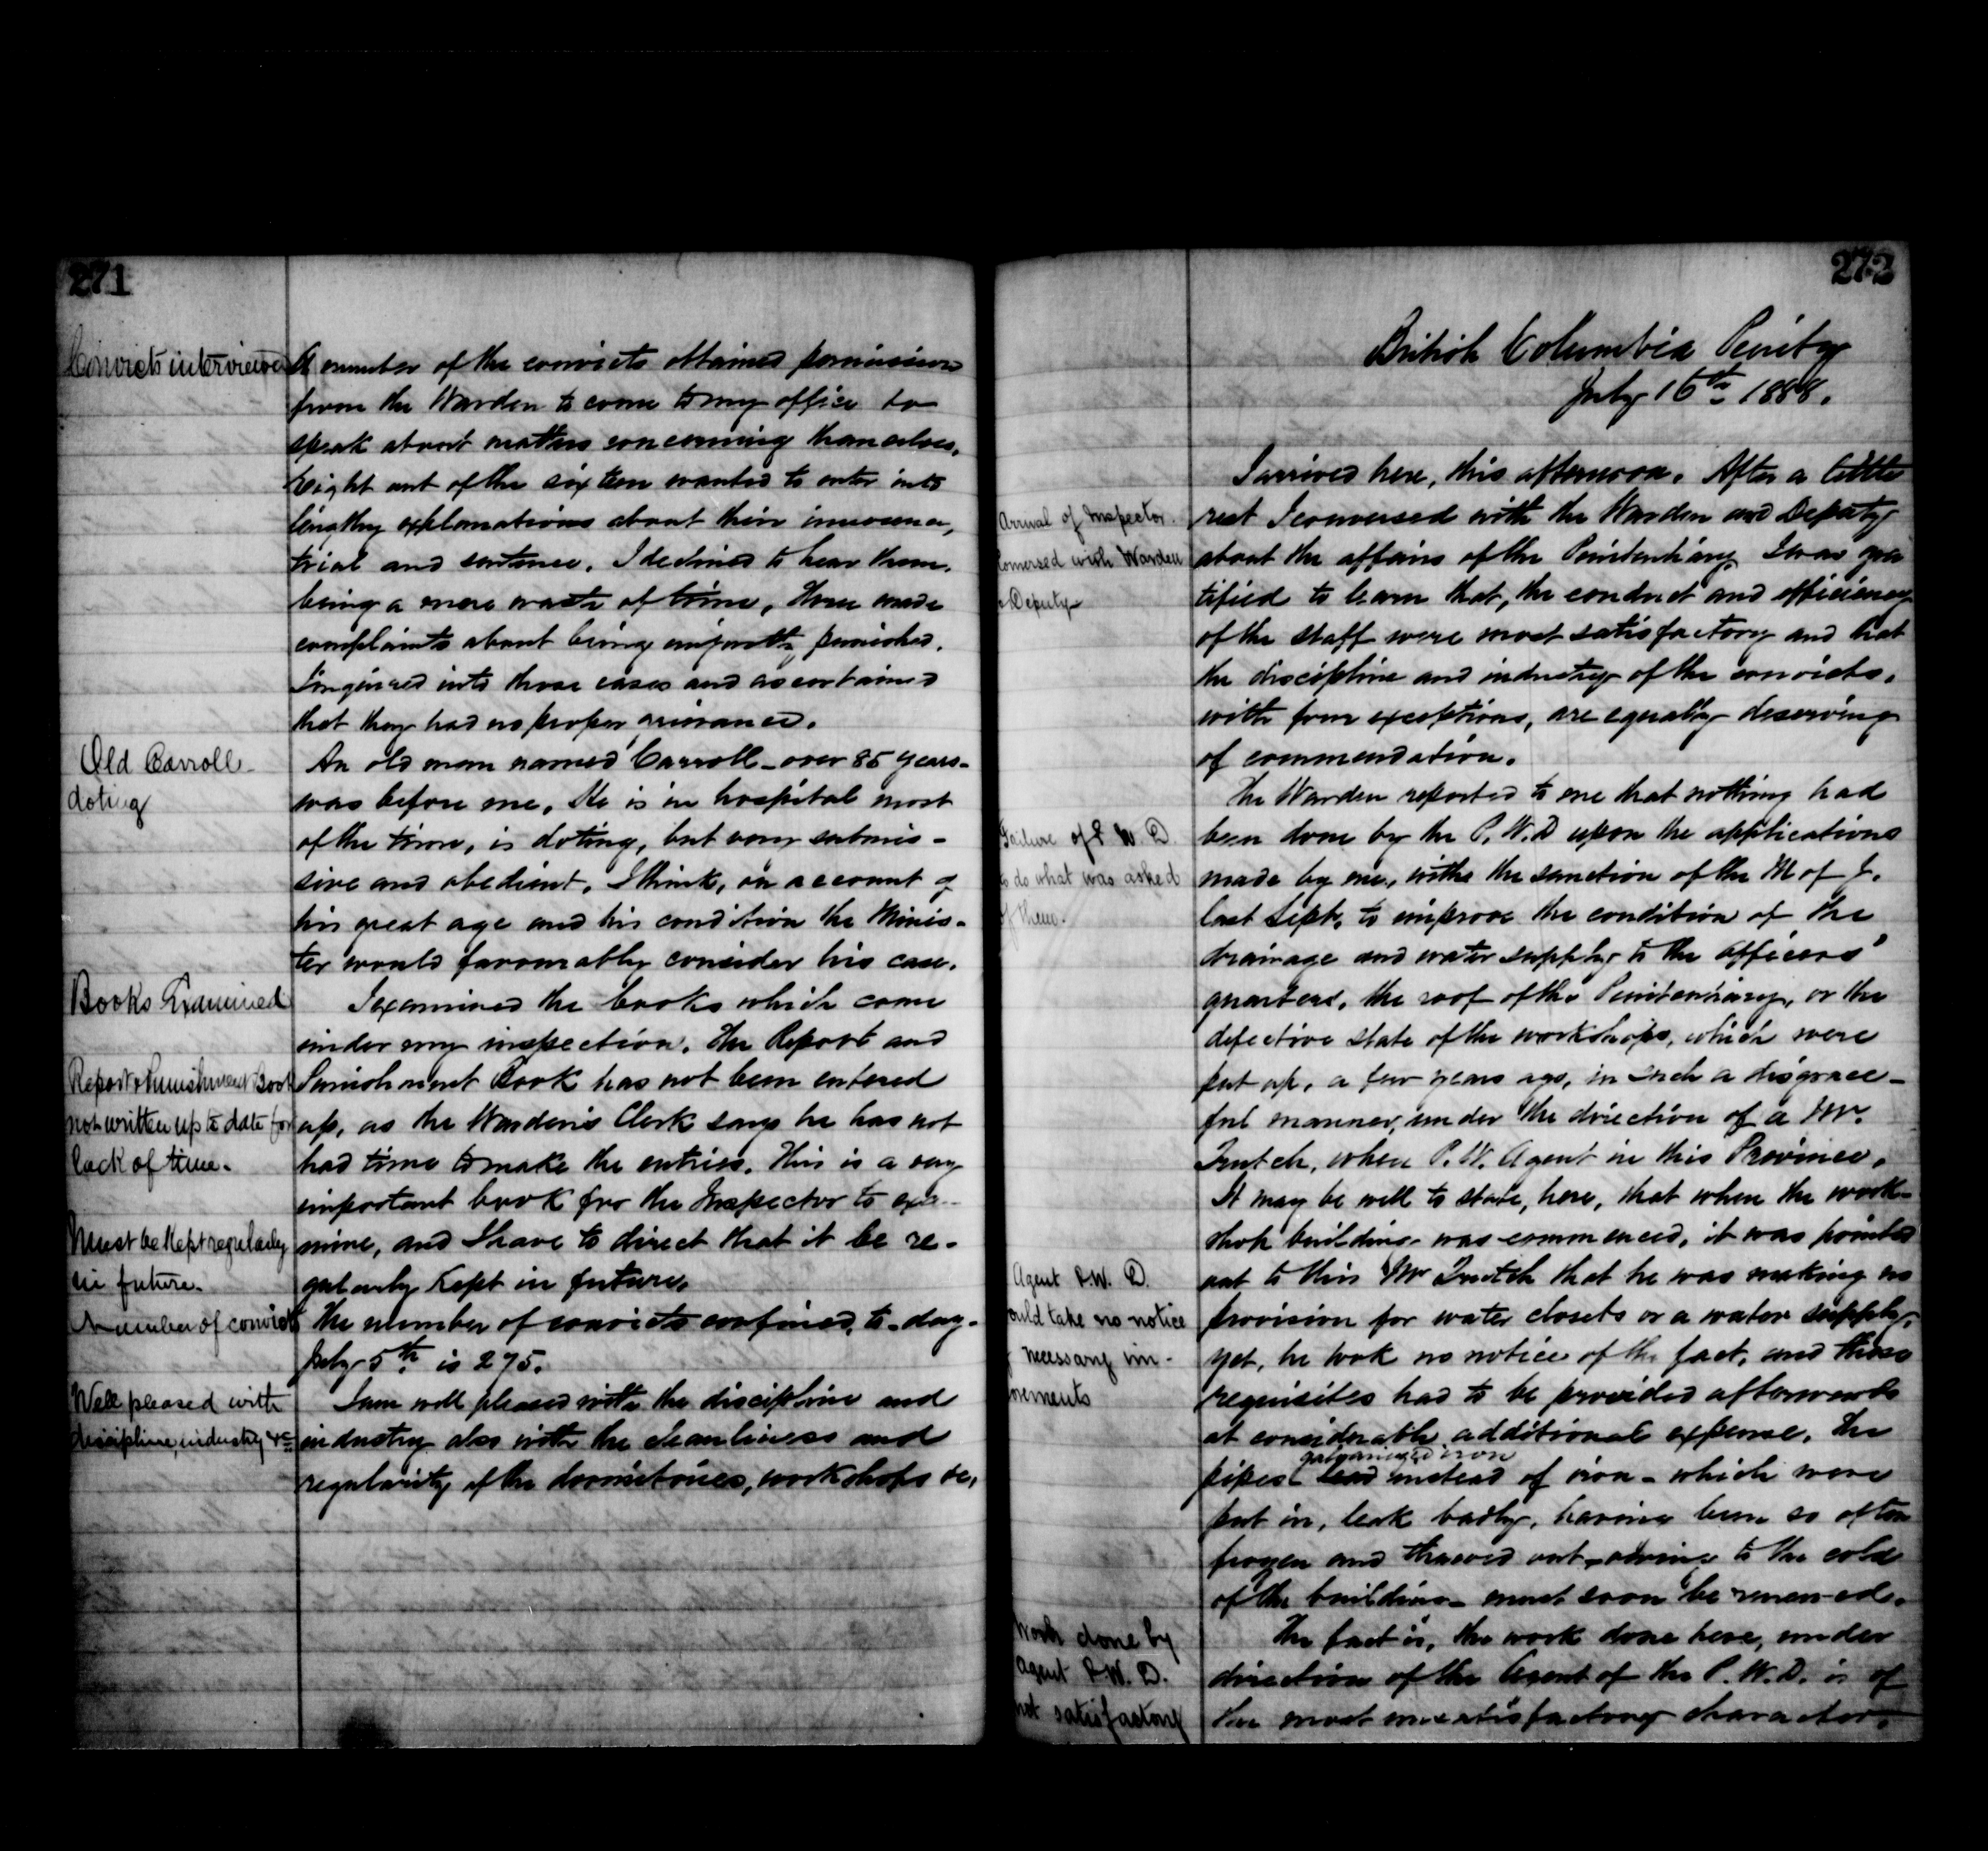 271
Convicts interviewed
A number of the convicts obtained permission
from the Warden to come to my office to
speak about matters concerning themselves.
Eight out of the sixteen wanted to enter into
lengthy explanations about their innocence,
trial and sentence. I declined to hear them,
being a mere waste of time, Three made
complaints about being unjustly punished.
I inquired into those cases and ascertained
that they had no proper grievance.
Old Carroll
doting
An old man named Carroll - over 85 years -
was before me. He is in hospital most
of the time, is doting, but very submis-
sive and obedient. I think, on account of
his great age and his condition the Minis-
ter would favourably consider his case.
Books Examined
I examined the books which come
under my inspection. The Report and
Report & Punishment Book
not written up to date for
lack of time.
Punishment Book has not been entered
up, as the Warden's Clerk says he has not
had time to make the entries. This is a very
important book for the Inspector to exa-
Must be kept regularly
in future.
mine, and I have to direct that it be re-
gularly kept in future.
Number of convicts
The number of convicts confined, to-day-
July 5th is 275.
Well pleased with
discipline, industry &c
I am well pleased with the discipline and
industry also with the cleanliness and
regularity of the dormitories, workshops &c,
272
British Columbia Penity
July 16th 1888.
Arrival of Inspector.
Conversed with Warden
& Deputy
I arrived here, this afternoon. After a little
rest I conversed with the Warden and Deputy
about the affairs of the Penitentiary. I was gra
tified to learn that, the conduct and efficiency
of the staff were most satisfactory and that
the discipline and industry of the convicts,
with four exceptions, are equally deserving
of commendation.
Failure of P. W. D.
to do what was asked
of them.
The Warden reported to me that nothing had
been done by the P. W. D upon the applications
made by me, with the sanction of the M of J.
last Sept. to improve the condition of the
drainage and water supply to the officers'
quarters, the roof of the Penitentiary, or the
defective state of the workshops, which were
put up, a few years ago, in such a disgrace-
ful manner, under the direction of a Mr.
Trutch, when P. W. Agent in this Province.
It may be well to state, here, that when the work-
shop building was commenced, it was pointed
Agent P. W. D.
ould take no notice
f necessary im-
ovements
out to this Mr Trutch that he was making no
provision for water closets or a water supply,
yet, he took no notice of the fact, and those
requisites had to be provided afterwards
at considerable additional expense. The
galvanized iron
pipes - lead instead of iron - which were
put in, leak badly, having been so often
frozen and thawed out - owing to the cold
of the building - must soon be renewed.
Work done by
Agent P. W. D.
not satisfactory
The fact is, the work done here, under
direction of the Agent of the P. W. D. is of
the most unsatisfactory character.